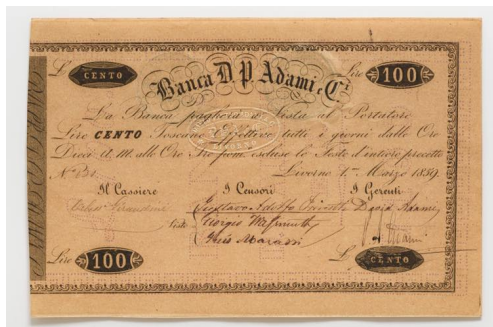 L.
CENTO
Banca D. P. Adami e C.i
Lire
100
La Banca pagherà a Vista al Portatore
Lire CENTO Toscane Effettive tutti i giorni dalle Ore
Dieci A. M. alle Ore Tre pom. escluse le Feste d'intiero precetto
N.° Livorno 1.mo Marzo 1859.
Il Cassiere I Censori I Gerenti
Gustavo Adolfo David Adami
Visto Giorgio
Chris
Lire
100
L.
CENTO